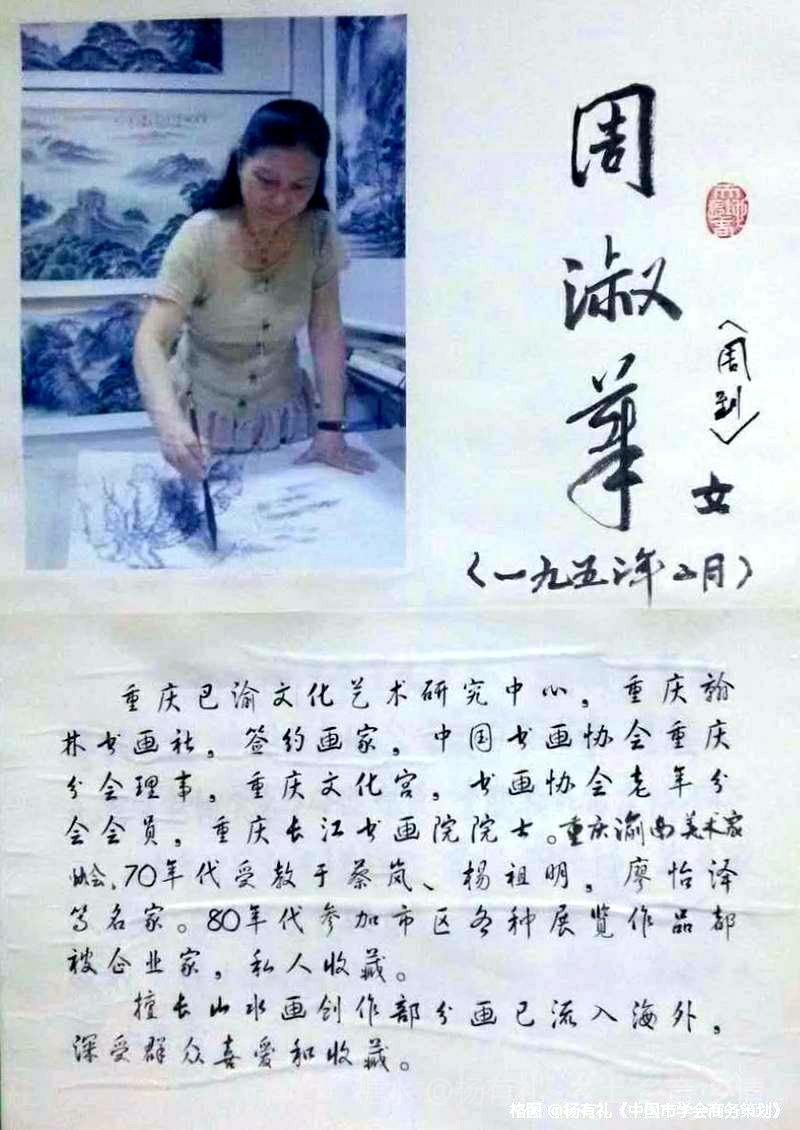 周淑华
〈周到〉
女
〈一九五二年二月〉
重庆巴渝文化艺术研究中心，重庆翰
林书画社，签约画家，中国书画协会重庆
分会理事，重庆文化宫，书画协会老年分
会会员，重庆长江书画院院士。重庆渝南美术家
协会，70年代受教于蔡岚、杨祖明，廖怡泽
等名家。80年代参加市区各种展览作品都
被企业家，私人收藏。
擅长山水画创作部分画已流入海外，
深受群众喜爱和收藏。
格图 @杨有礼《中国市学会商务策划》